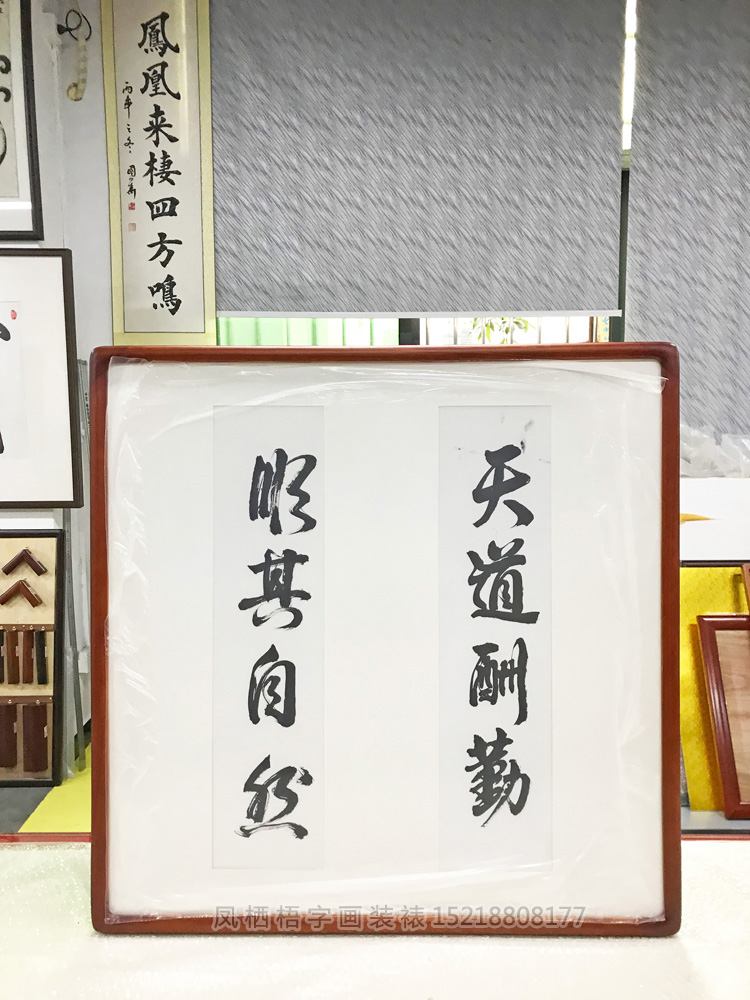 鳳凰来棲四方鳴
丙年之冬
天道酬勤
顺其自然
凤栖梧字画装裱15218808177